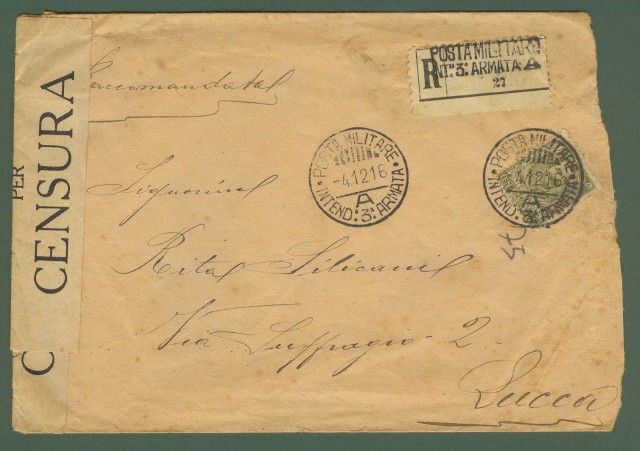 PER
CENSURA
C
Raccomandata
R
POSTA MILITARE
INT.ª 3ª ARMATA A
27
POSTA MILITARE
-4.12.16
A
INTEND. 3ª ARMATA
POSTA MILITARE
-4.12.16
A
INTEND. 3ª ARMATA
Signorina
Rita
Via Suffragio 2
Lucca